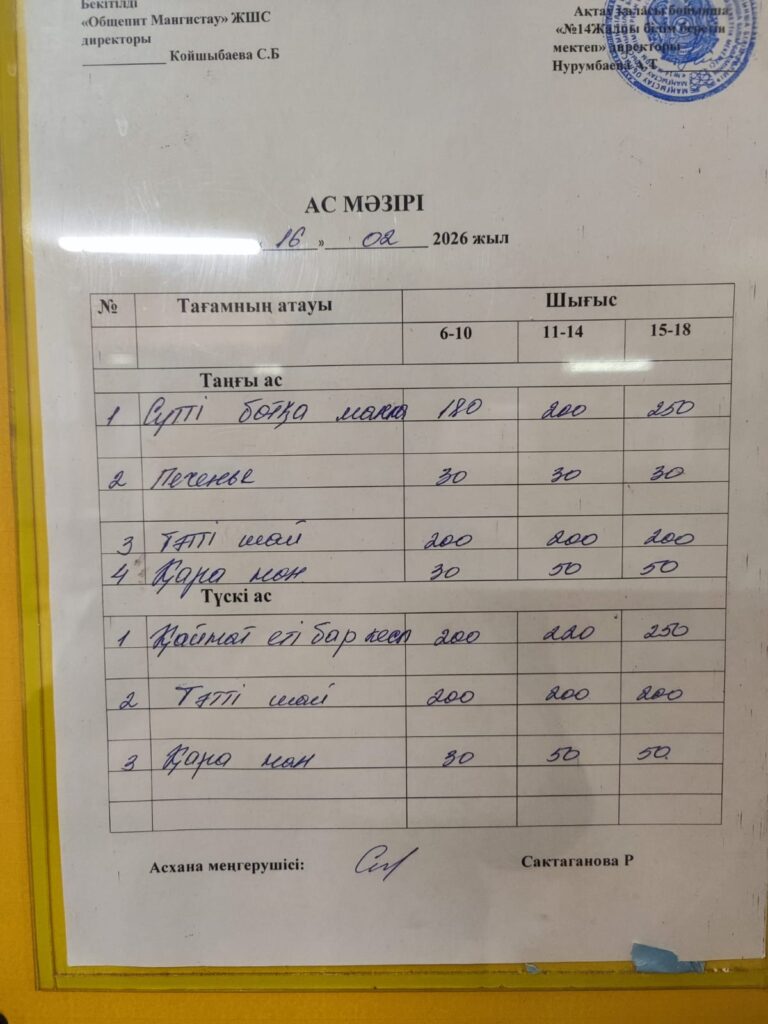 Бекітілді
«Общепит Мангистау» ЖШС
директоры
____________ Койшыбаева С.Б
Ақтау қаласы бойынша
«№14Жалпы білім беретін
мектеп» директоры
Нурумбаева А.Т
АС МӘЗІРІ
«16» 02 2026 жыл
№ Тағамның атауы Шығыс
6-10 11-14 15-18
Таңғы ас
1 Сүтті ботқа 180 200 250
2 Печенье 30 30 30
3 Тәтті шай 200 200 200
4 Қара нан 30 50 50
Түскі ас
1 еті бар кеспе 200 220 250
2 Тәтті шай 200 200 200
3 Қара нан 30 50 50
Асхана меңгерушісі: Сактаганова Р